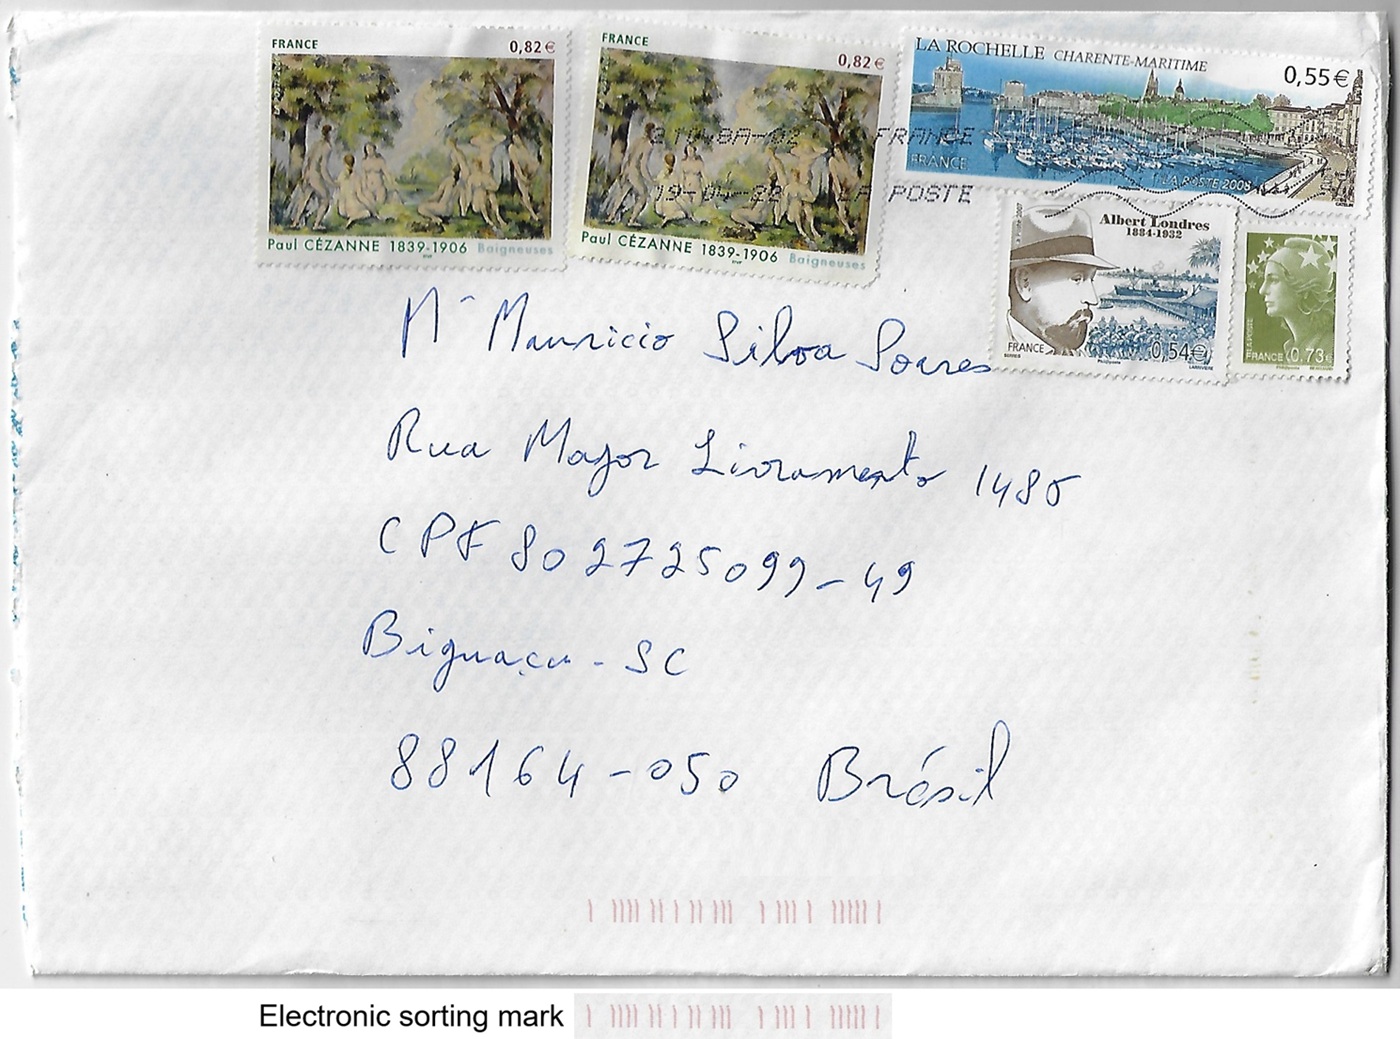 FRANCE 0,82€
Paul CÉZANNE 1839-1906 Baigneuses
FRANCE 0,82€
Paul CÉZANNE 1839-1906 Baigneuses
LA ROCHELLE CHARENTE-MARITIME
0,55€
FRANCE
LA POSTE 2008
FRANCE
19-04-22 LA POSTE
Albert Londres
1884-1932
FRANCE
0,54€
FRANCE 0,73€
Mr Mauricio Silva Soares
Rua Major Livramento 1485
CPF 802725099-49
Biguaçu - SC
88164-050 Brésil
Electronic sorting mark